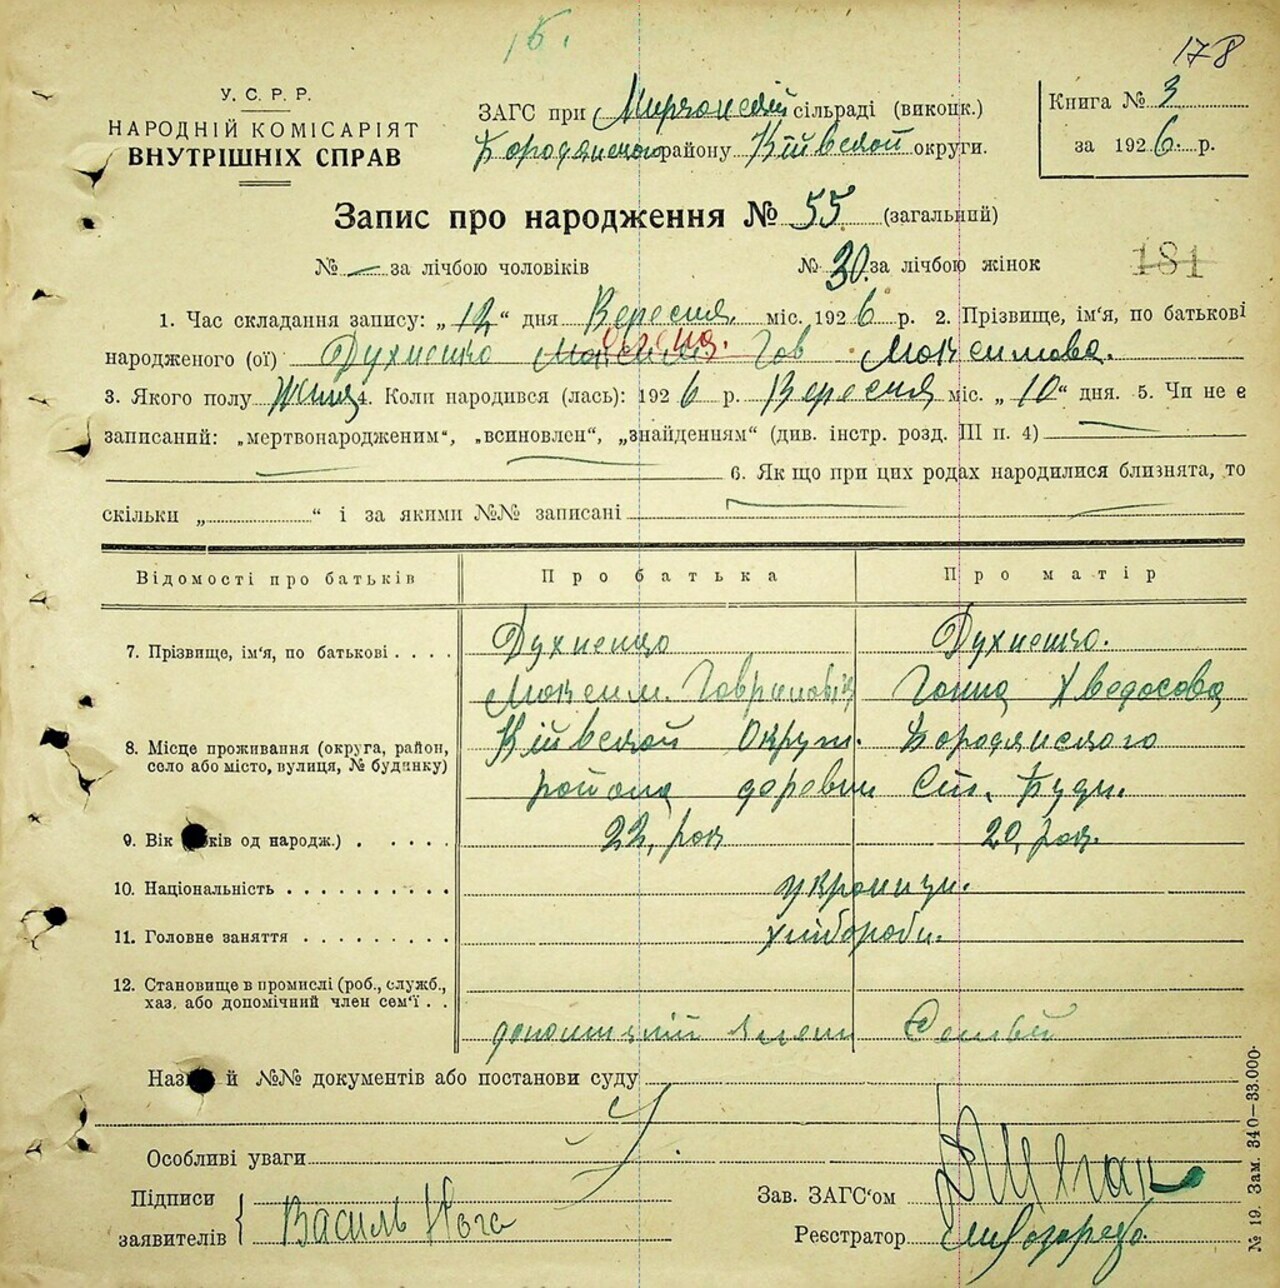 15.
178
У. С. Р. Р.
НАРОДНІЙ КОМІСАРІЯТ
ВНУТРІШНІХ СПРАВ
ЗАГС при Мирчанскій сільраді (виконк.)
Бородянского району Київской округи.
Книга № 3
за 1926. р.
Запис про народження № 55 (загальний)
№ — за лічбою чоловіків № 30. за лічбою жінок
181
1. Час складання запису: „12“ дня Вересня. міс. 1926 р. 2. Прізвище, ім'я, по батькові
народженого (ої) Духненко Максимова.
3. Якого полу 4. Коли народився (лась): 1926 р. Вересня міс. „10“ дня. 5. Чи не є
записаний: „мертвонародженим“, „всиновлен“, „знайденням“ (див. інстр. розд. III п. 4)
6. Як що при цих родах народилися близнята, то
скільки „ “ і за якими №№ записані
Відомості про батьків Про батька Про матір
7. Прізвище, ім'я, по батькові . . . . Духненко Духненко.
Максим. Гаврилович Ганна Хведосова
8. Місце проживання (округа, район, село або місто, вулиця, № будинку) Київской округи. Бородянского
района деревни Ст. Буди.
9. Вік ( ків од народж.) . . . . . 22, рок 20, рок.
10. Національність . . . . . . . . . . українци.
11. Головне заняття . . . . . . . . . хлібороби.
12. Становище в промислі (роб., служб.,
хаз. або допомічний член сем'ї . .
член Семьи
Наз й №№ документів або постанови суду
Особливі уваги
Підписи
заявителів
Василь Нога
Зав. ЗАГС'ом
Реєстратор
№ 19. Зам. 340—33.000.